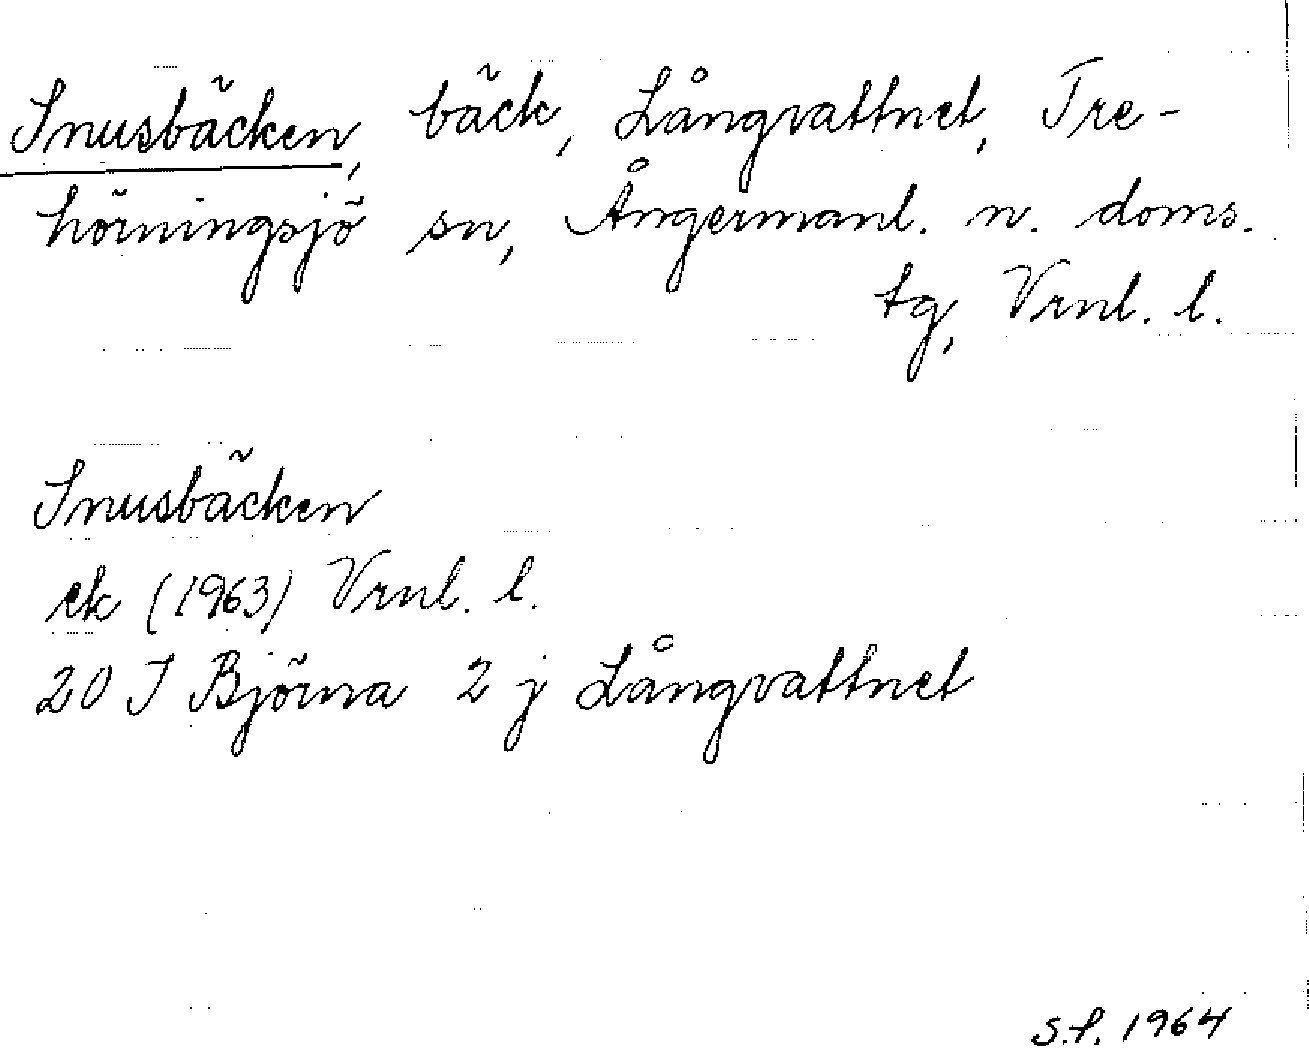 Snusbäcken, bäck, Långvattnet, Tre-
hörningsjö sn, Ångermanl. n. doms.
tg, Vrnl. l.
Snusbäcken
ek (1963) Vrnl. l.
20 I Björna 2 j Långvattnet
S.f. 1964